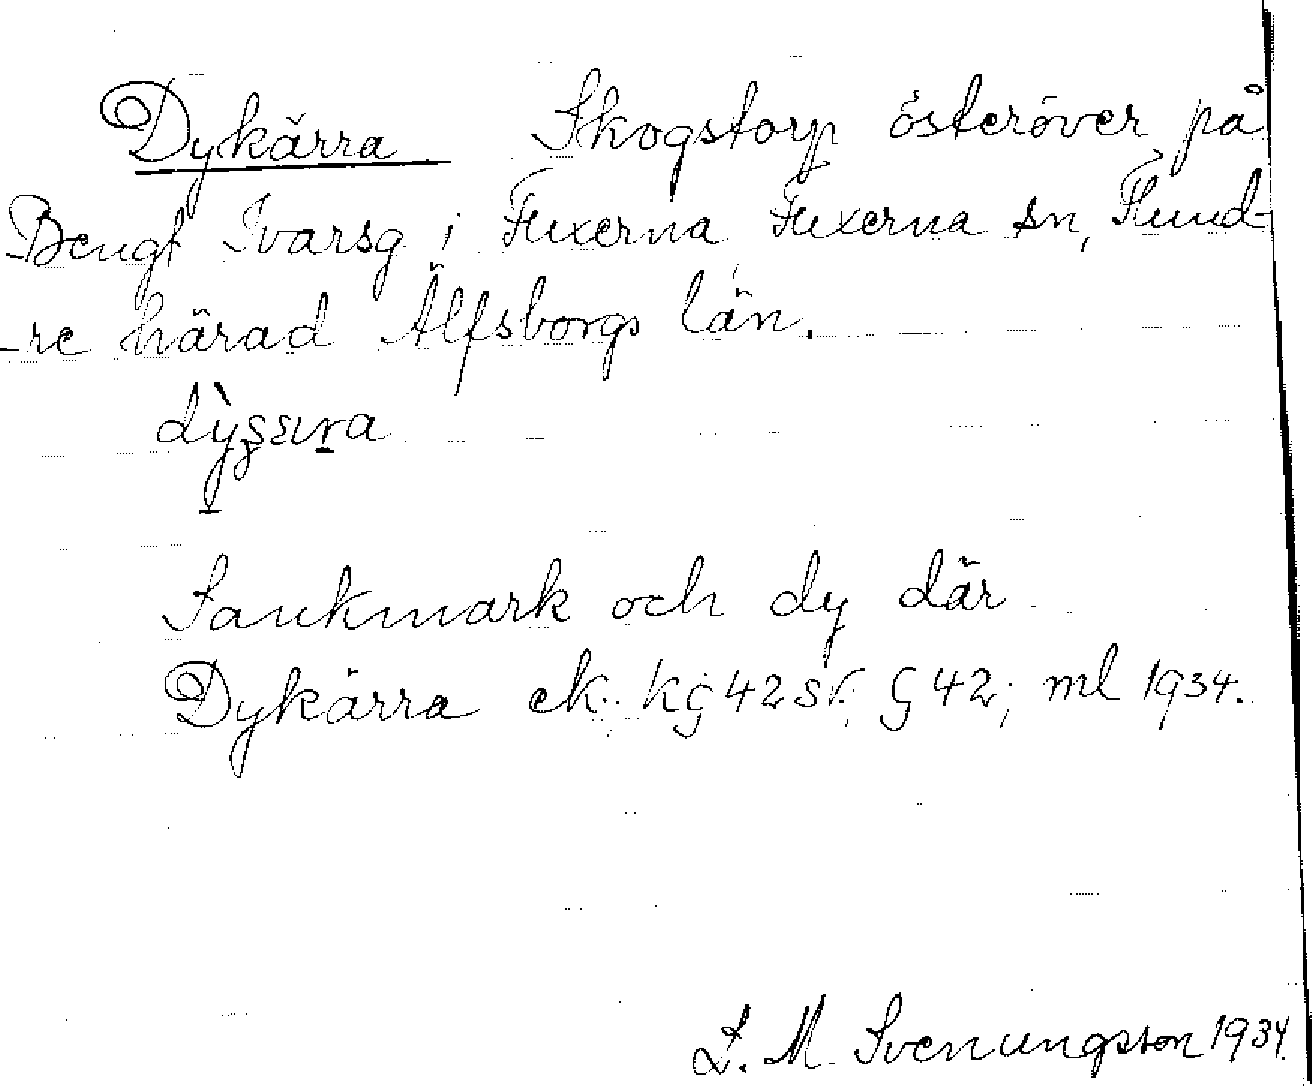 Dykärra Skogstorp österöver på
Bengt Ivarsg i Fuxerna Fuxerna sn, Flund-
-re härad Älfsborgs län.
Sankmark och dy där
Dykärra ek. kg 42 sr. G 42; ml 1934.
L. M. Svenungsson 1934.